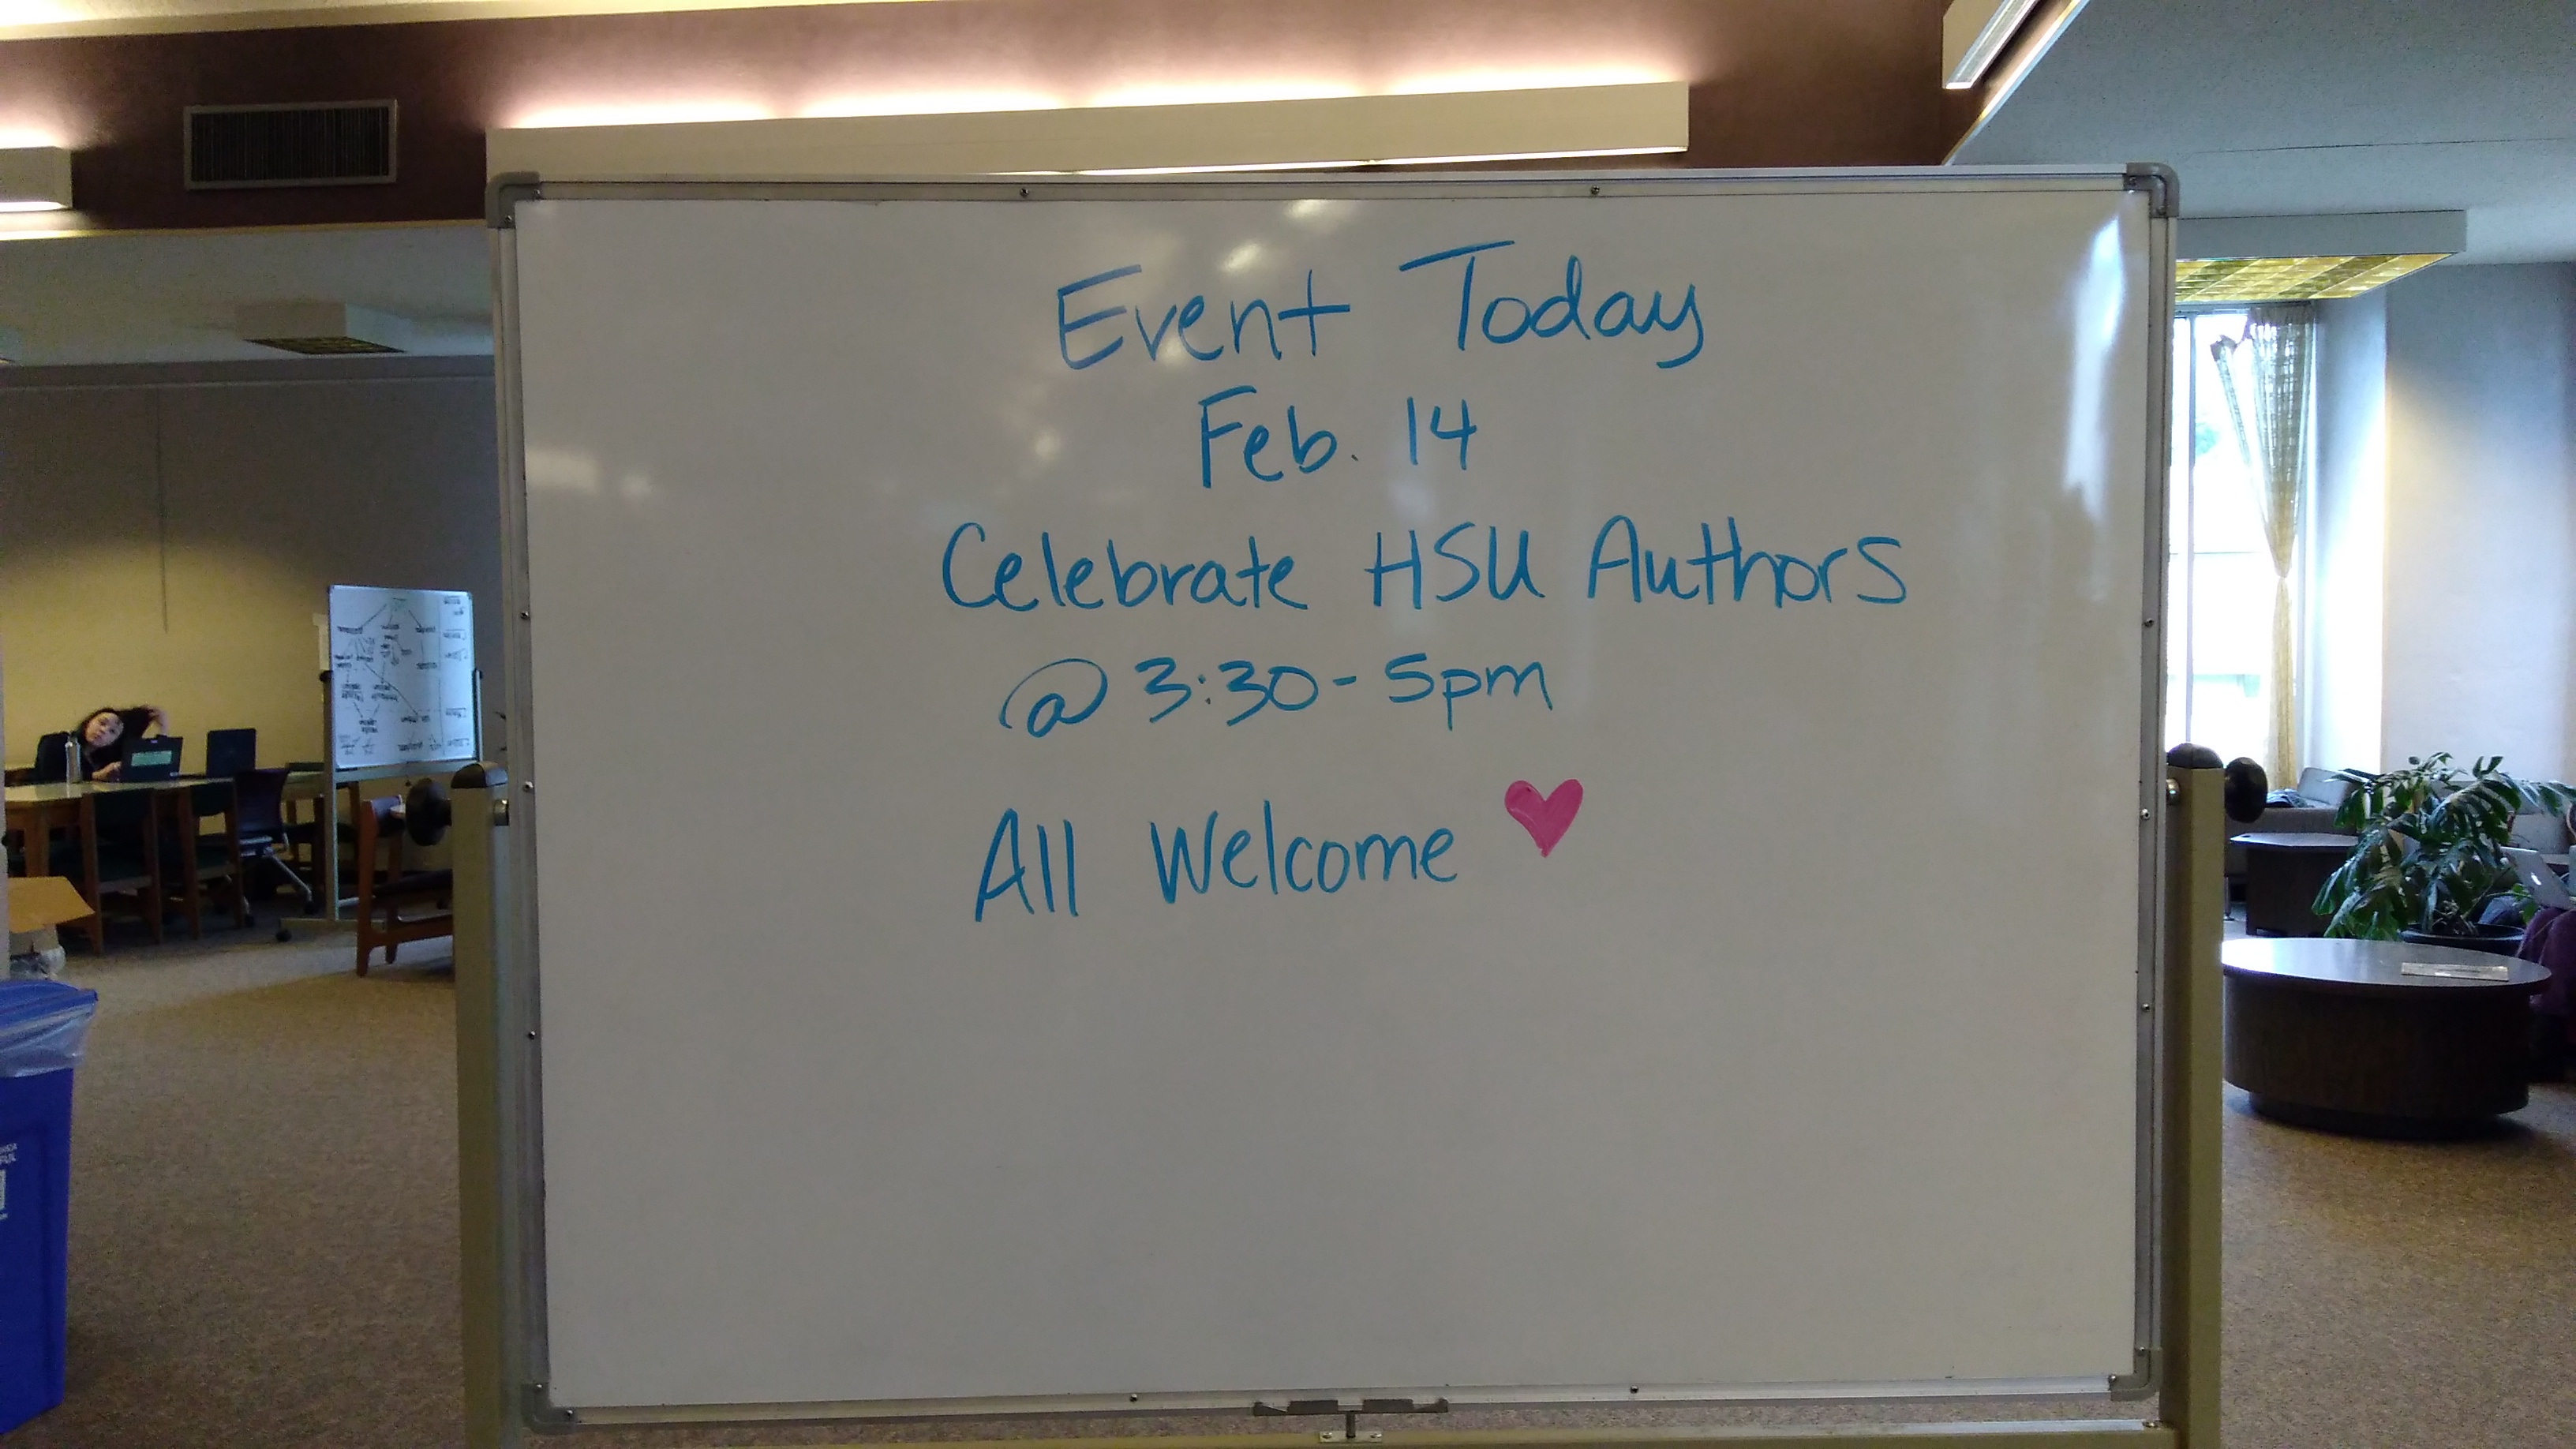 Event Today
Feb. 14
Celebrate HSU Authors
@ 3:30 - 5pm
All Welcome